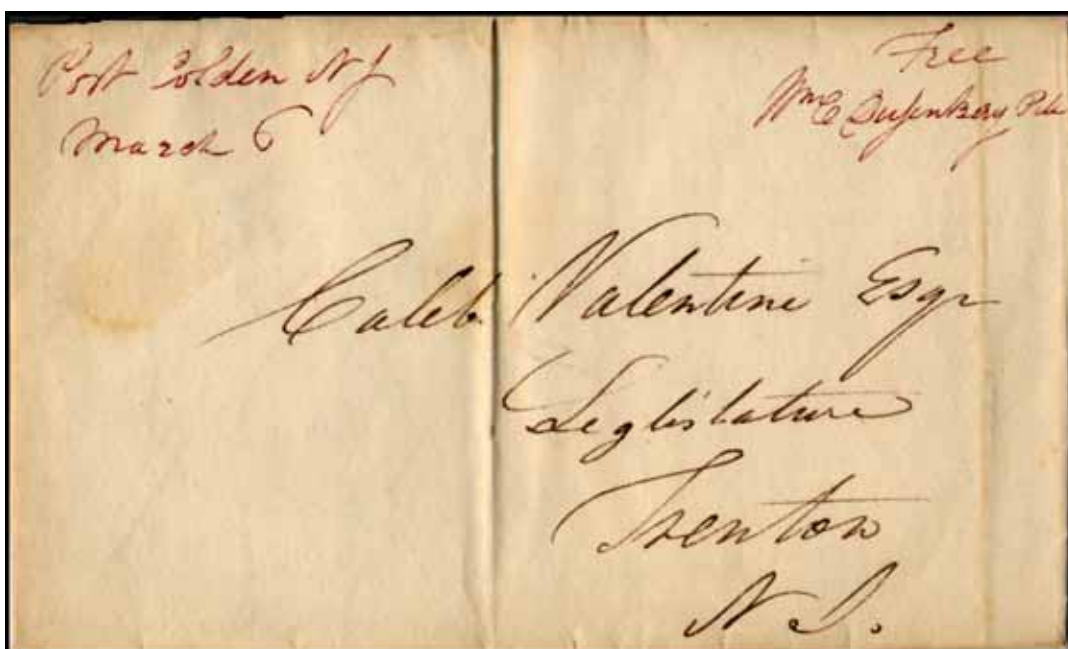 Port Colden N J
March 6
Free
Wm C Dusenbery P M
Caleb Valentine Esqr
Leglislature
Trenton
N J.